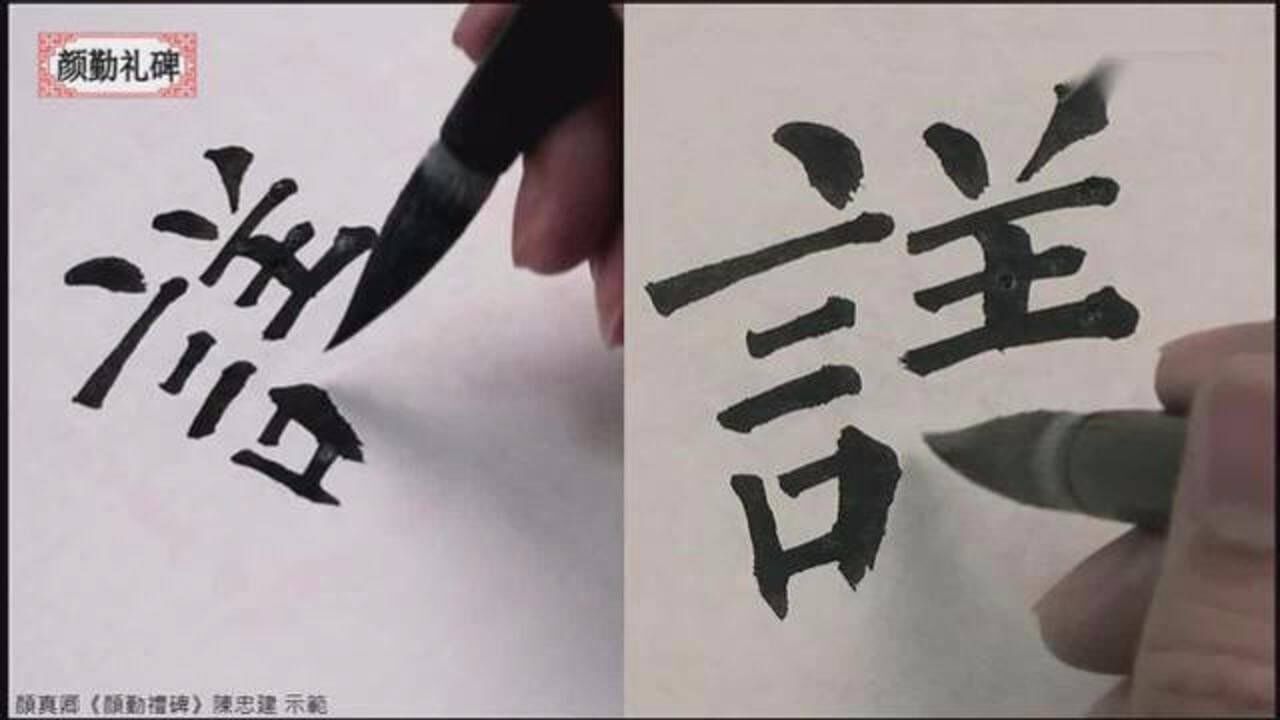 颜勤礼碑
顏真卿《顏勤禮碑》陳忠建 示範